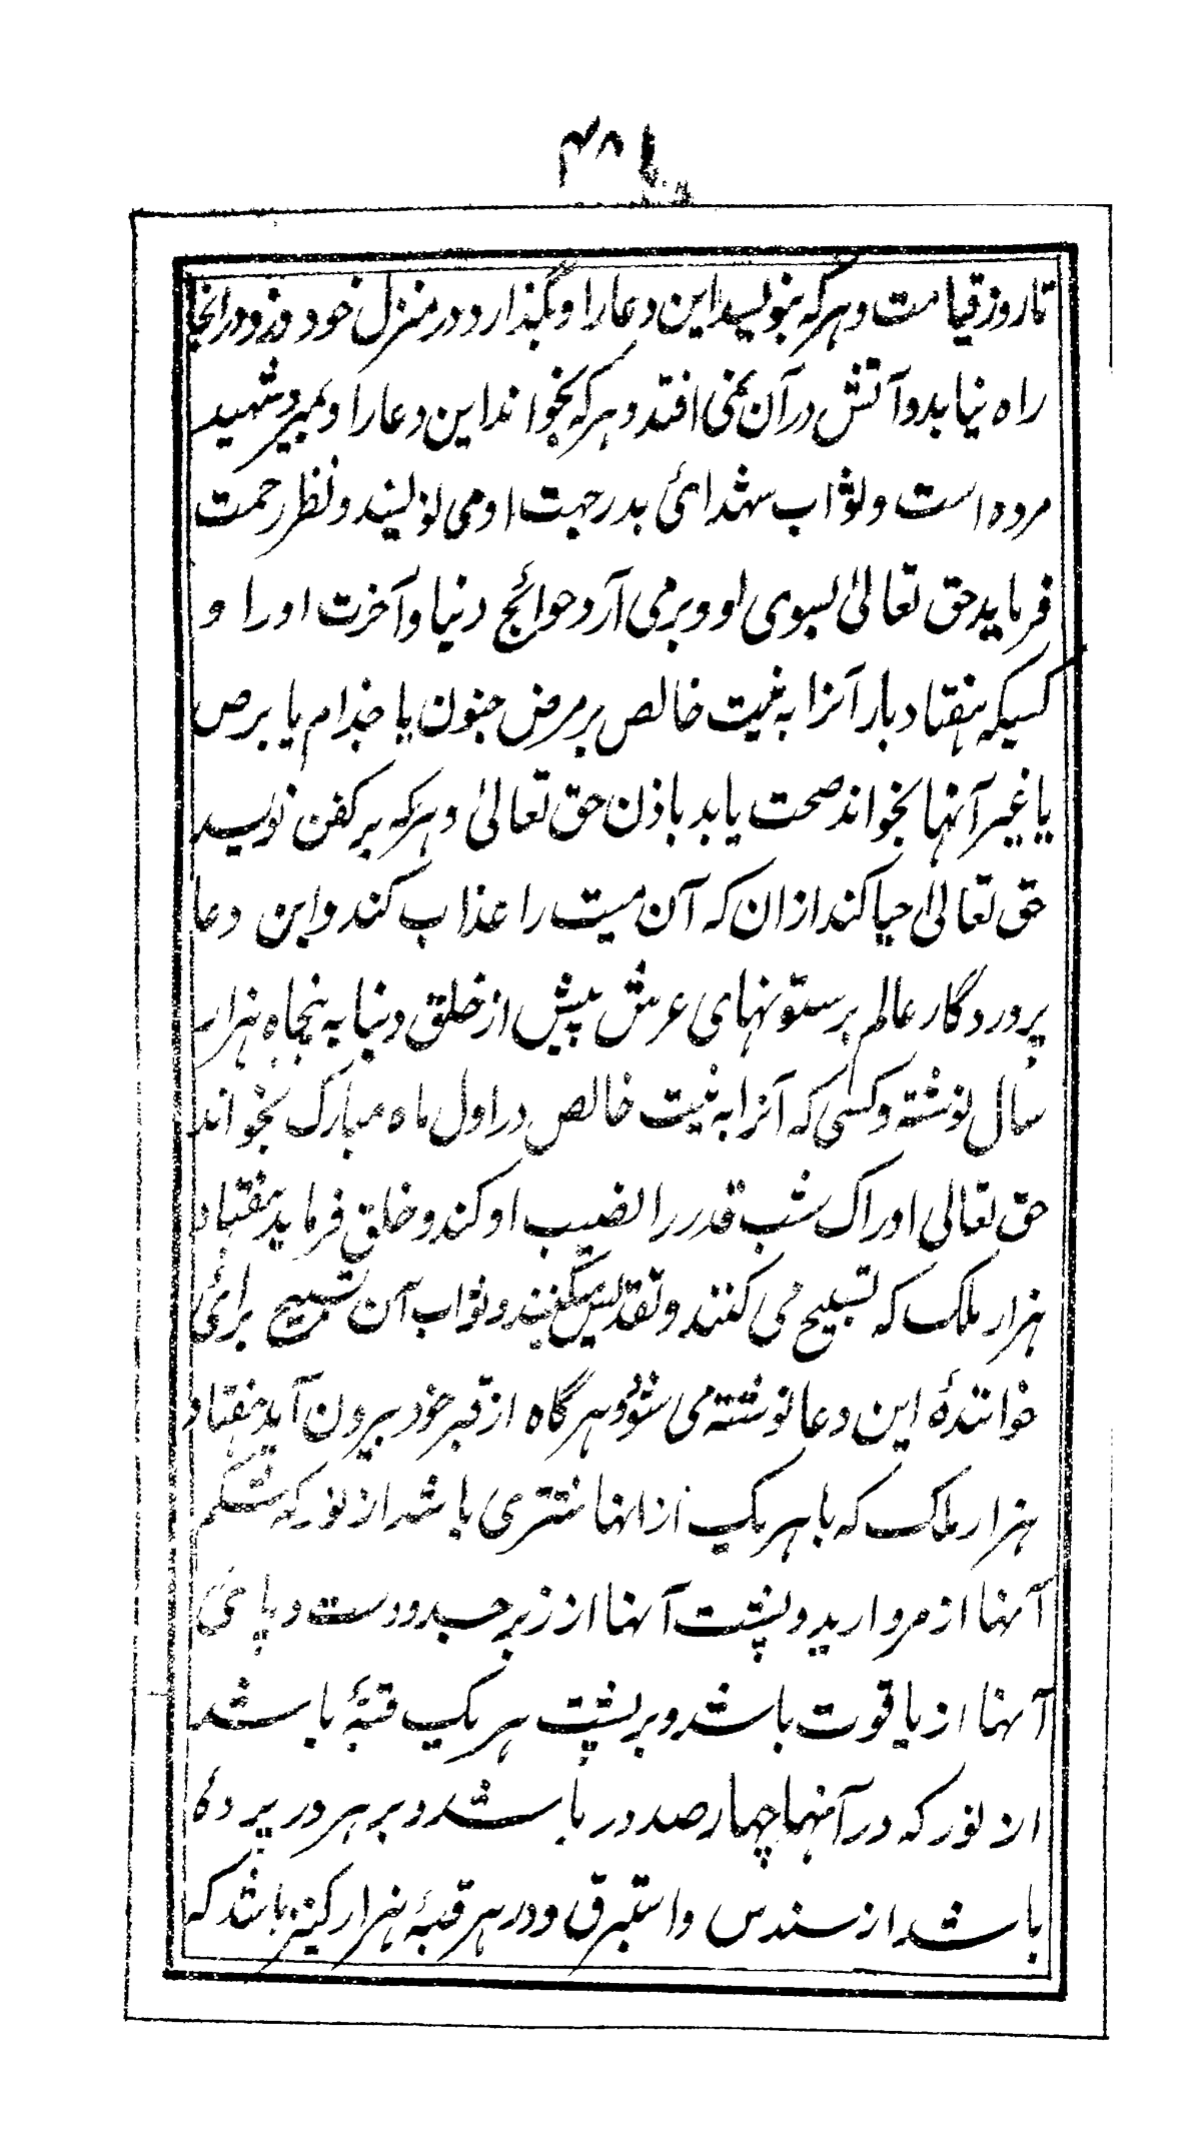 ۴۸
تا روز قیامت و هر که بنویسد این دعا را و بگذارد در منزل خود دزد در انجا
راه نیابد و آتش در آن نمی افتد و هر که بخواند این دعا را و بمیرد شهید
مرده است و ثواب شهدائ بدر جهت او می نویسند و نظر رحمت
فرماید حق تعالیٰ بسوی او و بر می آرد حوائج دنیا و آخرت او را و
کسیکه هفتاد بار آنرا به نیت خالص بر مرض جنون یا جذام یا برص
یا غیر آنها بخواند صحت یابد باذن حق تعالیٰ و هر که بر کفن نویسد
حق تعالیٰ حیا کند از ان که آن میت را عذاب کند و این دعا
پروردگار عالم بر ستونهای عرش پیش از خلق دنیا به پنجاه هزار
سال نوشته و کسی که آنرا به نیت خالص در اول ماه مبارک بخواند
حق تعالی ادراک شب قدر را نصیب او کند و خلق فرماید هفتاد
هزار ملک که تسبیح می کنند و تقدیس میکنند و ثواب آن تسبیح برائ
خوانندهٔ این دعا نوشته می شود و هر گاه از قبر خود بیرون آید هفتاد
هزار ملک که با هر یک از انها شتری باشد از نور که شکم
آنها از مروارید و پشت آنها از زبرجد و دست و پا ئ
آنها از یاقوت باشد و بر پشت هر یک قبهٔ باشد
از نور که در آنها چهار صد در باشد و بر هر در پرده
باشد از سندس و استبرق و در هر قبهٔ هزار کنیز باشد که